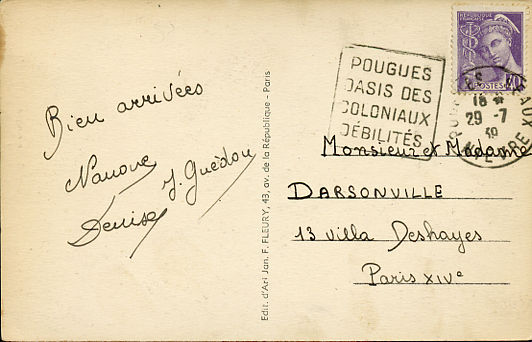 Bien arrivées
Nanone J. Guédon
Denise
Edit. d'Art Jan. F. FLEURY, 43, av. de la République - Paris
POUGUES
OASIS DES
COLONIAUX
DÉBILITÉS
POSTES
18 *
29 -7
39
NIEVRE
Monsieur et Madame
DARSONVILLE
13 Villa Deshayes
Paris XIVe